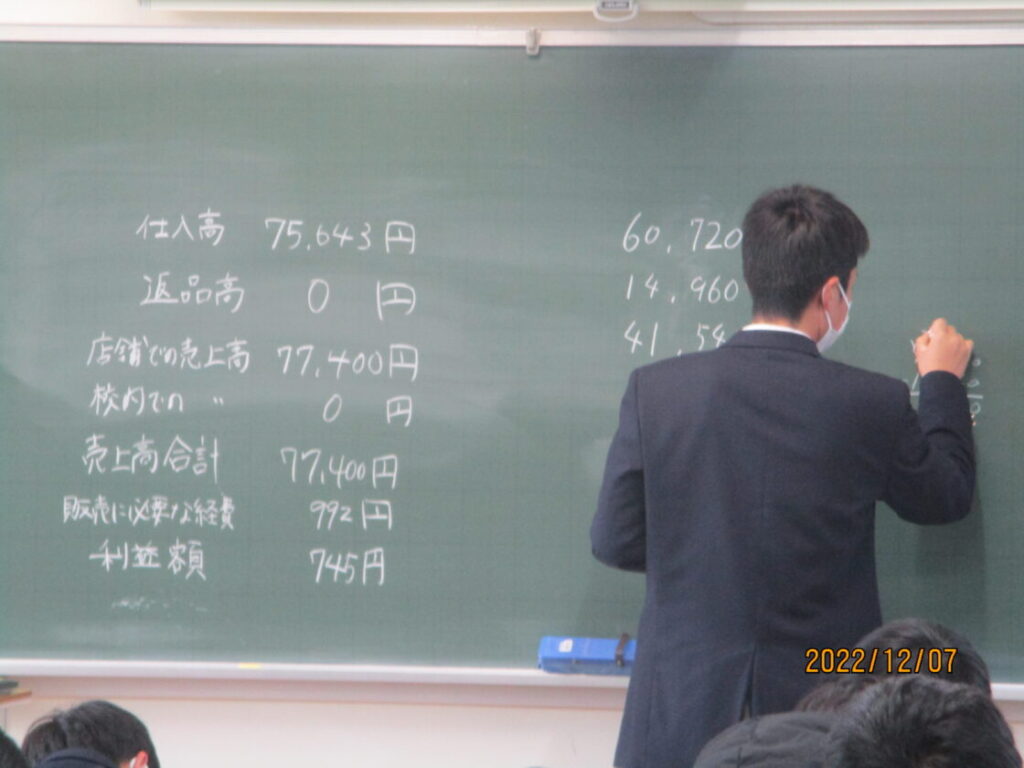 仕入高 75,643円
返品高 0 円
店舗での売上高 77,400円
校内での 〃 0 円
売上高合計 77,400円
販売に必要な経費 992円
利益額 745円
60,720
14,960
41,54
2022/12/07